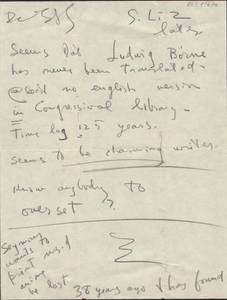 S. Liz
later
Seems that Ludwig Börne
has never been translated -
@ least no english version
in Congressional library -
Time lag 125 years.
seems to be charming writer.
Know anybody to
overset ?
Seymour
wants to
print
lost 38 years ago & has found